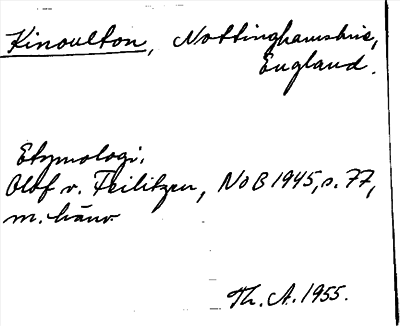 Kinoulton, Nottinghamshire,
England.
Etymologi.
Olof v. Feilitzen, NoB 1945, s. 77,
m. hänv.
Th. A. 1955.